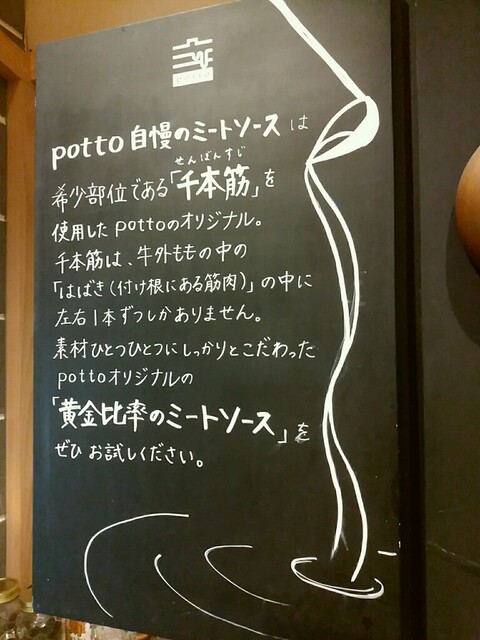 potto
potto 自慢のミートソースは
せんぼんすじ
希少部位である「千本筋」を
使用したpottoのオリジナル。
千本筋は、牛外ももの中の
「はばき(付け根にある筋肉)」の中に
左右1本ずつしかありません。
素材ひとつひとつにしっかりとこだわった
pottoオリジナルの
「黄金比率のミートソース」を
ぜひお試しください。